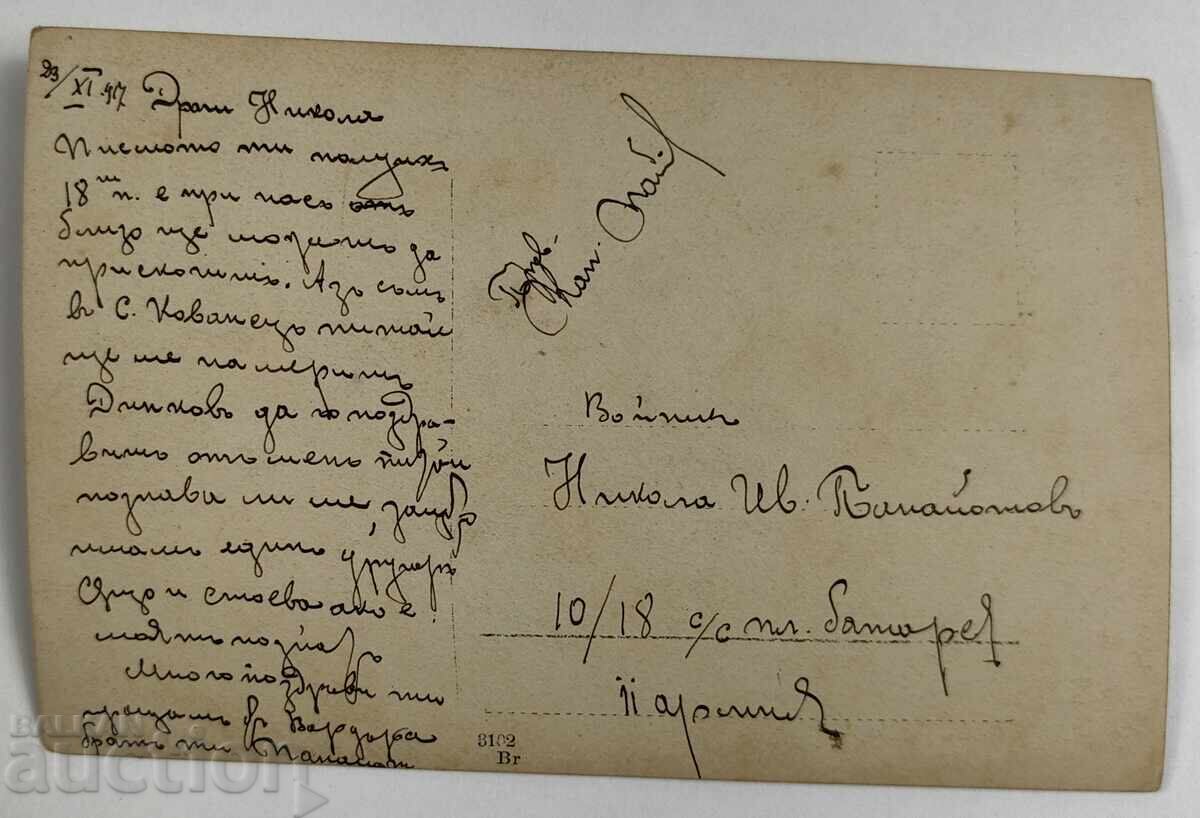 23/XI.917 Драги Никола
Писмото ти получихъ
18ти п. е при насъ
близо ще можешъ да
прискочишъ. Азъ съмъ
въ с. Кованецъ питай
ще ме намеришъ
Динковъ да го поздра-
вишъ отъ мень питай
познава ли ме,
имамъ единъ другарь
и Стоева ако е
моятъ познат
Много поздрави ти
пращамъ Вардара
братъ ти Панайот
Кап.
Войникъ
Никола Ив. Панайотовъ
10/18 с/с пл. батарея
II армия
3102
Br
БАЛКАН
auction